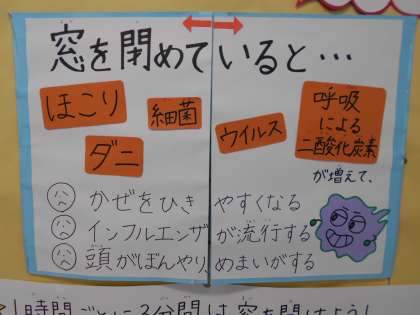 窓を閉めていると…
ほこり
細菌
ダニ
ウイルス
呼吸
による
二酸化炭素
が増えて、
かぜをひきやすくなる
インフルエンザが流行する
頭がぼんやり、めまいがする
1時間ごとに3分間は窓を開けましょう!